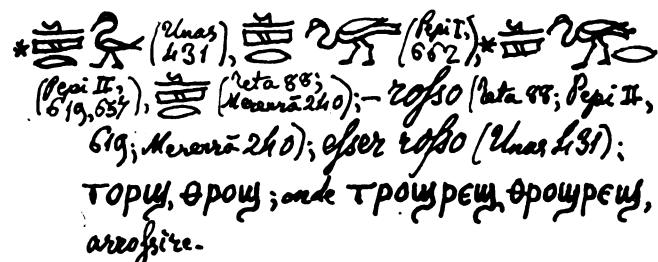 * (Unas 431), (Pepi I, 662), *
(Pepi II, 619, 657), (Teta 88; Merenrā 240); – rosso (Teta 88; Pepi II,
619; Merenrā 240); esser rosso (Unas 431);
ⲧⲟⲣϣ, ⲑⲣⲟϣ; onde ⲧⲣⲟϣⲣⲉϣ, ⲑⲣⲟϣⲣⲉϣ,
arrossire.